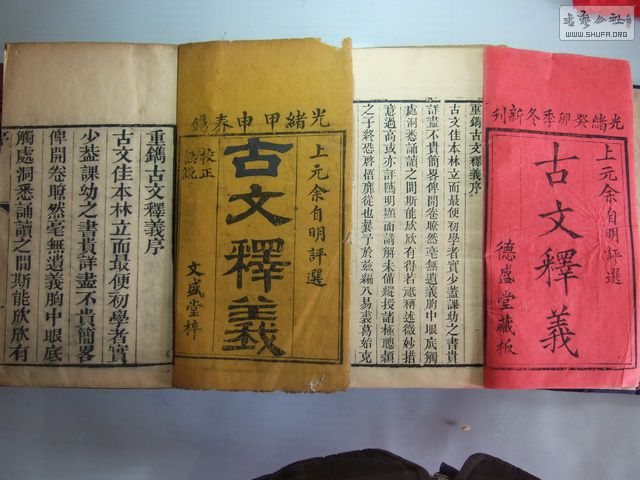 光緒癸卯季冬新刊
上元余自明評選
古文釋義
德盛堂藏板
重鐫古文釋義序
古文佳本林立而最便初學者實少葢課幼之書貴
詳盡不貴簡畧俾開卷瞭然毫無遺義胸中眼底觸
處洞悉誦讀之間斯能欣欣有得若秪稱述微妙措
意過高或亦訂明顯而講解未備縱授諸極聰頴
之子終恐啓悟靡從也曩予於茲編八易裘葛始克
光緒甲申春鐫
上元余自明評選
古文釋義
校正無訛
文盛堂梓
重鐫古文釋義序
古文佳本林立而最便初學者實
少葢課幼之書貴詳盡不貴簡畧
俾開卷瞭然毫無遺義胸中眼底
觸處洞悉誦讀之間斯能欣欣有
序
书艺公社
WWW.SHUFA.ORG